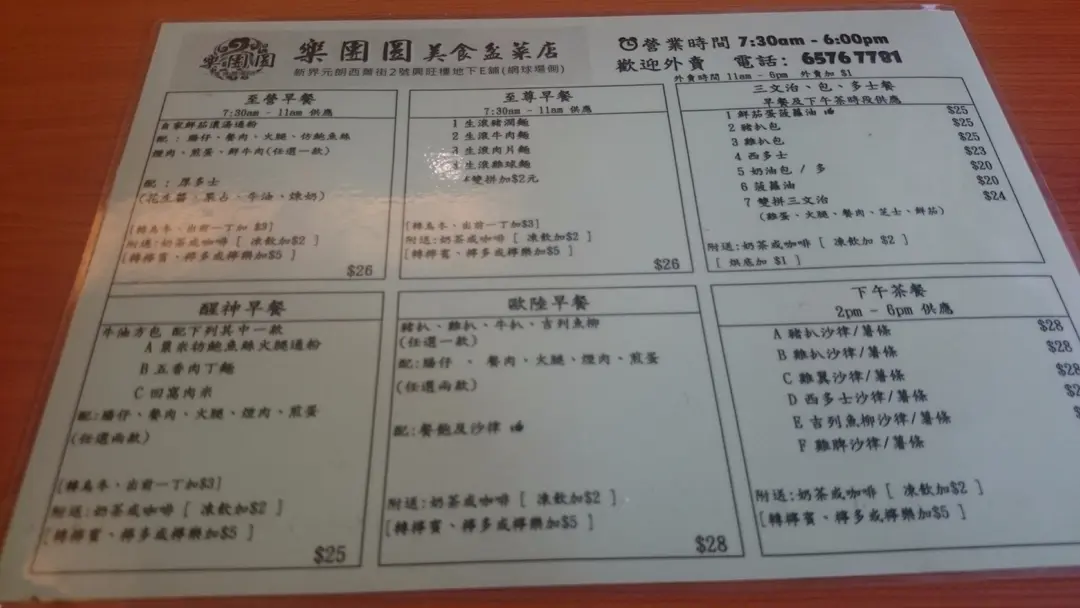 樂團圓
樂團圓 美食盆菜店
新界元朗西菁街2號興旺樓地下E舖(網球場側)
營業時間 7:30am - 6:00pm
歡迎外賣 電話: 6576 7781
外賣時間 11am - 6pm 外賣加 $1
至營早餐
7:30am - 11am 供應
自家鮮茄濃湯通粉
配：腸仔、餐肉、火腿、仿鮑魚絲
煙肉、煎蛋、鮮牛肉(任選一款)
配：厚多士
(花生醬、果占、牛油、煉奶)
[轉烏冬、出前一丁加 $3]
附送:奶茶或咖啡 [ 凍飲加$2 ]
[轉檸賓、檸多或檸樂加$5 ]
$26
至尊早餐
7:30am - 11am 供應
1 生滾豬潤麵
2 生滾牛肉麵
3 生滾肉片麵
4 生滾雞球麵
*雙拼加$2元
[轉烏冬、出前一丁加$3]
附送:奶茶或咖啡 [ 凍飲加$2 ]
[轉檸賓、檸多或檸樂加$5 ]
$26
三文治、包、多士餐
早餐及下午茶時段供應
1 鮮茄蛋菠蘿油 $25
2 豬扒包 $25
3 雞扒包 $25
4 西多士 $23
5 奶油包 / 多 $20
6 菠蘿油 $20
7 雙拼三文治 $24
(雞蛋、火腿、餐肉、芝士、鮮茄)
附送:奶茶或咖啡 [ 凍飲加 $2 ]
[ 烘底加 $1 ]
醒神早餐
牛油方包 配下列其中一款
A 粟米仿鮑魚絲火腿通粉
B 五香肉丁麵
C 回窩肉米
配:腸仔、餐肉、火腿、煙肉、煎蛋
(任選兩款)
[轉烏冬、出前一丁加$3]
附送:奶茶或咖啡 [ 凍飲加$2 ]
[轉檸賓、檸多或檸樂加$5 ]
$25
歐陸早餐
豬扒、雞扒、牛扒、吉列魚柳
(任選一款)
配:腸仔、餐肉、火腿、煙肉、煎蛋
(任選兩款)
配:餐飽及沙律
附送:奶茶或咖啡 [ 凍飲加$2 ]
[轉檸賓、檸多或檸樂加$5 ]
$28
下午茶餐
2pm - 6pm 供應
A 豬扒沙律/薯條 $28
B 雞扒沙律/薯條 $28
C 雞翼沙律/薯條 $28
D 西多士沙律/薯條
E 吉列魚柳沙律/薯條
F 雞脾沙律/薯條
附送:奶茶或咖啡 [ 凍飲加$2 ]
[轉檸賓、檸多或檸樂加$5 ]